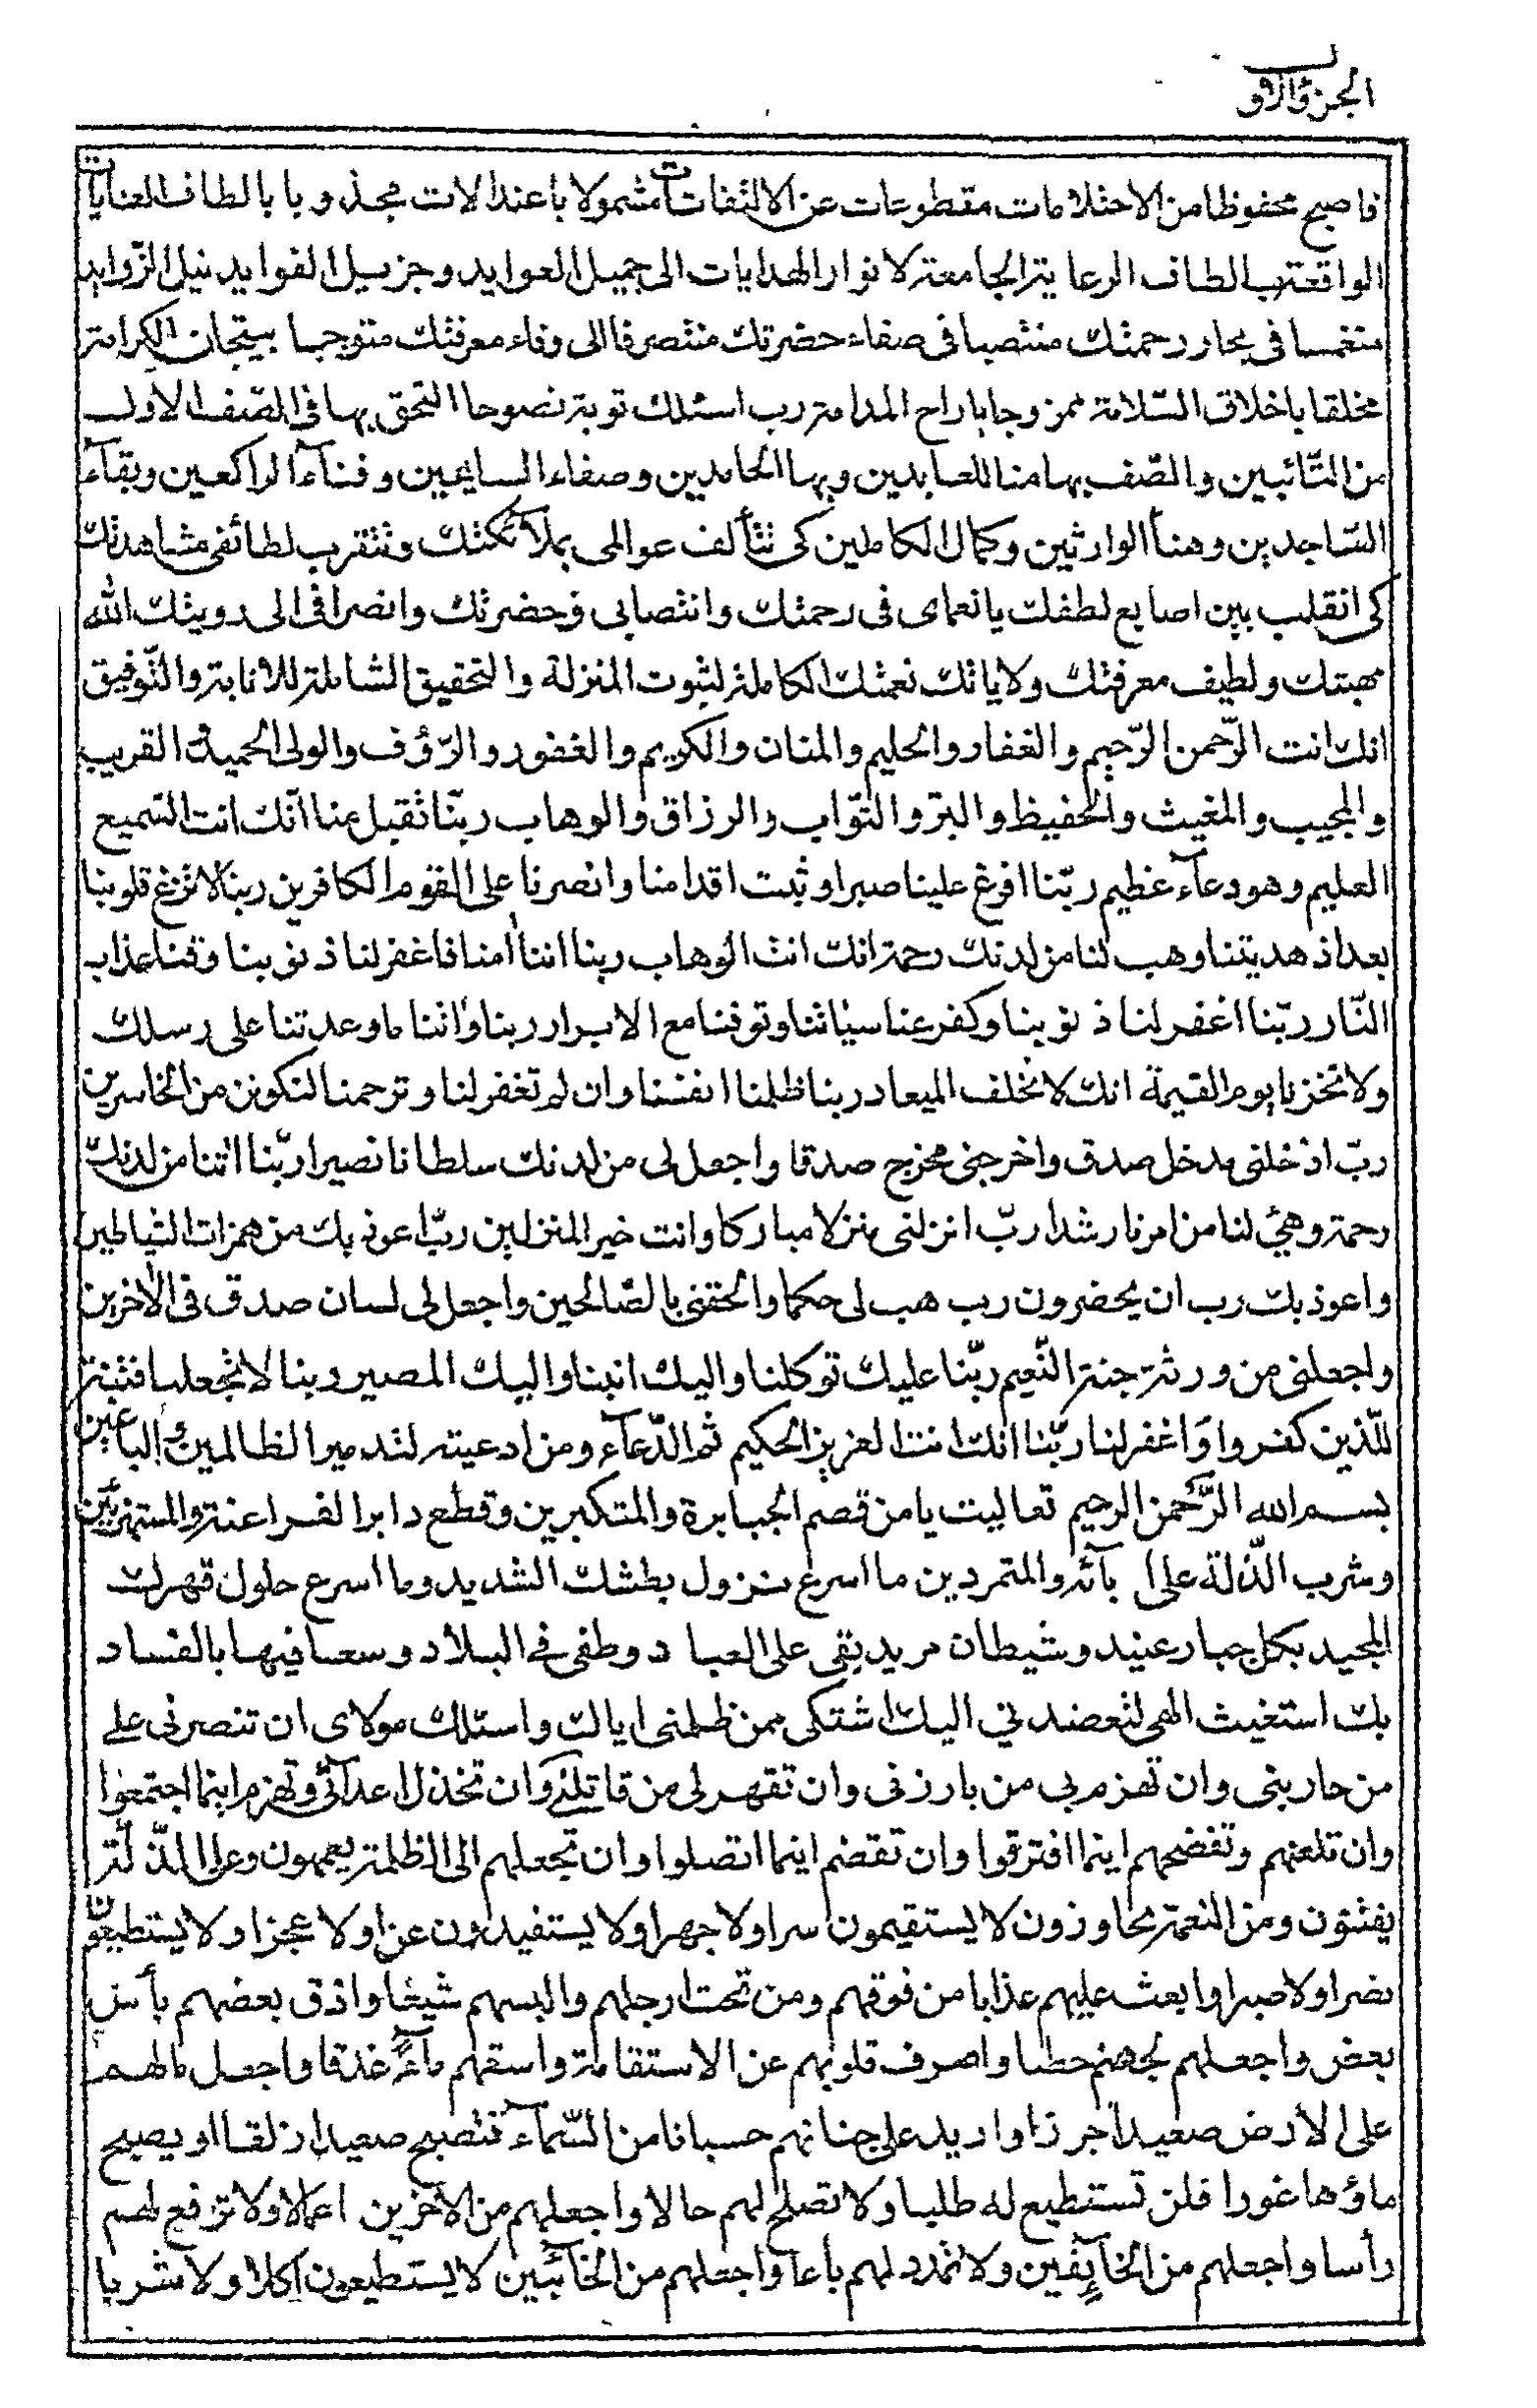 الجزء الاول
فاصبح محفوظا من الاختلامات مقطوعات عن الالتفاتات مشمولا باعتدالات مجذوبا بالطاف العنايات
الواقعة بالطاف الرعاية الجامعة لانوار الهدايات الى جميل العوايد وجزيل الفوايد نيل الزوايد
منغمسا فى بحار رحمتك منتصبا فى صفاء حضرتك منتصرفا الى وفاء معرفتك متوجها بتيجان الكرامة
مخلقا باخلاق السّلامة ممزوجا باراح المدامة رب اسئلك توبة نصوحا التحق بها فى الصّف الاول
من التّائبين والصّف بها منا للعابدين وبها الحامدين وصفاء السايحين وفنآء الراكعين وبقآء
السّاجدين وهنأ الوارثين وكمال الكاملين كى تتألف عوالمى بملآئكتك وتتقرب لطائفى مشاهدتك
كى انقلب بين اصابع لطفك يانعماى فى رحمتك وانتصابى فى حضرتك وانصرافى الى رويتك الله
مهبتك ولطيف معرفتك ولاياتك نعمتك الكاملة لثبوت المنزلة والتحقيق الشاملة للانابة والتّوفيق
انك انت الرّحمن الرّحيم والغفار والحليم والمنان والكريم والغفور والرّؤف والولى الحميد القريب
والمجيب والمغيث والحفيظ والبرّ والتّواب والرزاق والوهاب ربّنا تقبل منا انّك انت السّميع
العليم وهو دعآء عظيم ربّنا افرغ علينا صبرا وثبت اقدامنا وانصرنا على القوم الكافرين ربنا لا تزغ قلوبنا
بعد اذ هديتنا وهب لنا من لدنك رحمة انك انت الوهاب ربنا اننا امنا فاغفر لنا ذنوبنا وقنا عذاب
النّار ربّنا اغفر لنا ذنوبنا وكفر عنا سياتنا وتوفنا مع الابرار ربنا واتنا ما وعدتنا على رسلك
ولا تخزنا يوم القيمة انك لا تخلف الميعاد ربنا ظلمنا انفسنا وان لم تغفر لنا وترحمنا لنكونن من الخاسرين
ربّ ادخلنى مدخل صدق واخرجنى مخرج صدقا واجعل لى من لدنك سلطانا نصيرا ربّنا اتنا من لدنك
رحمة وهيئ لنا من امرنا رشدا ربّ انزلنى منزلا مباركا وانت خير المنزلين ربّ اعوذ بك من همزات الشياطين
واعوذ بك رب ان يحضرون رب هب لى حكما والحقنى بالصّالحين واجعل لى لسان صدق فى الاخرين
واجعلنى من ورثة جنة النّعيم ربّنا عليك توكلنا واليك انبنا واليك المصير ربنا لا تجعلنا فتنة
للّذين كفروا وَاغفر لنا ربّنا انك انت العزيز الحكيم ثم الدّعآء ومن ادعيته لتدمير الظالمين والباغين
بسم الله الرَّحمن الرحيم تعاليت يا من قصم الجبابرة والمتكبرين وقطع دابر الفراعنة والمستهزئين
وضرب الذّلة على آبائه والمتمردين ما اسرع نزول بطشك الشديد وما اسرع حلول قهرك
المجيد بكل جبار عنيد وشيطان مريد بقى على العباد وطغى فى البلاد وسعا فيها بالفساد
بك استغيث الهى لتعضدنى اليك اشتكى ممن ظلمنى ايالك واسئلك مولاى ان تنصرنى على
من حاربنى وان تهزم بى من بارزنى وان تقهر لى من قاتلنى وان تخذل اعدآئى وتهزم اينما اجتمعوا
وان تلعنهم وتفضحهم اينما افترقوا وان تقضم اينما اتصلوا وان تجعلهم الى الظلمة يعمهون وعلى الذّلة
يفتنون ومن النعمة يحاوزون لا يستقيمون سرا ولا جهرا ولا يستفيدون عزا ولا عجزا ولا يستطيعون
نصرا ولا صبرا وابعث عليهم عذابا من فوقهم ومن تحت ارجلهم والبسهم شيعا واذق بعضهم بأس
بعض واجعلهم لجهنم حطبا واصرف قلوبهم عن الاستقامة واسقهم مآءً غدقا واجعل مالهم
على الارض صعيدا جرزا واريد على جناتهم حسبانا من السّمآء فتصبح صعيدا زلقا او يصبح
ماؤها غورا فلن تستطيع له طلبا ولا تصلح لهم حالا واجعلهم من الاخرين اعمالا ولا ترفع لهم
رأسا واجعلهم من الخآئفين ولا تمدد لهم باعا واجعلهم من الخآئبين لا يستطيعون اكلا ولا شربا